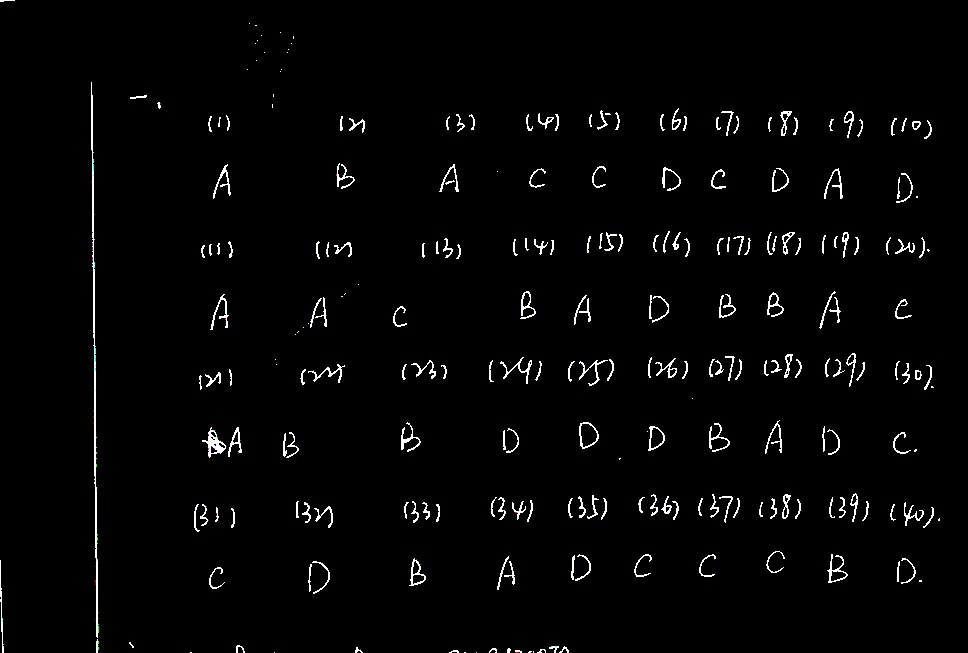 一、
(1) (2) (3) (4) (5) (6) (7) (8) (9) (10)
A B A C C D C D A D.
(11) (12) (13) (14) (15) (16) (17) (18) (19) (20).
A A C B A D B B A C
(21) (22) (23) (24) (25) (26) (27) (28) (29) (30).
A B B D D D B A D C.
(31) (32) (33) (34) (35) (36) (37) (38) (39) (40).
C D B A D C C C B D.